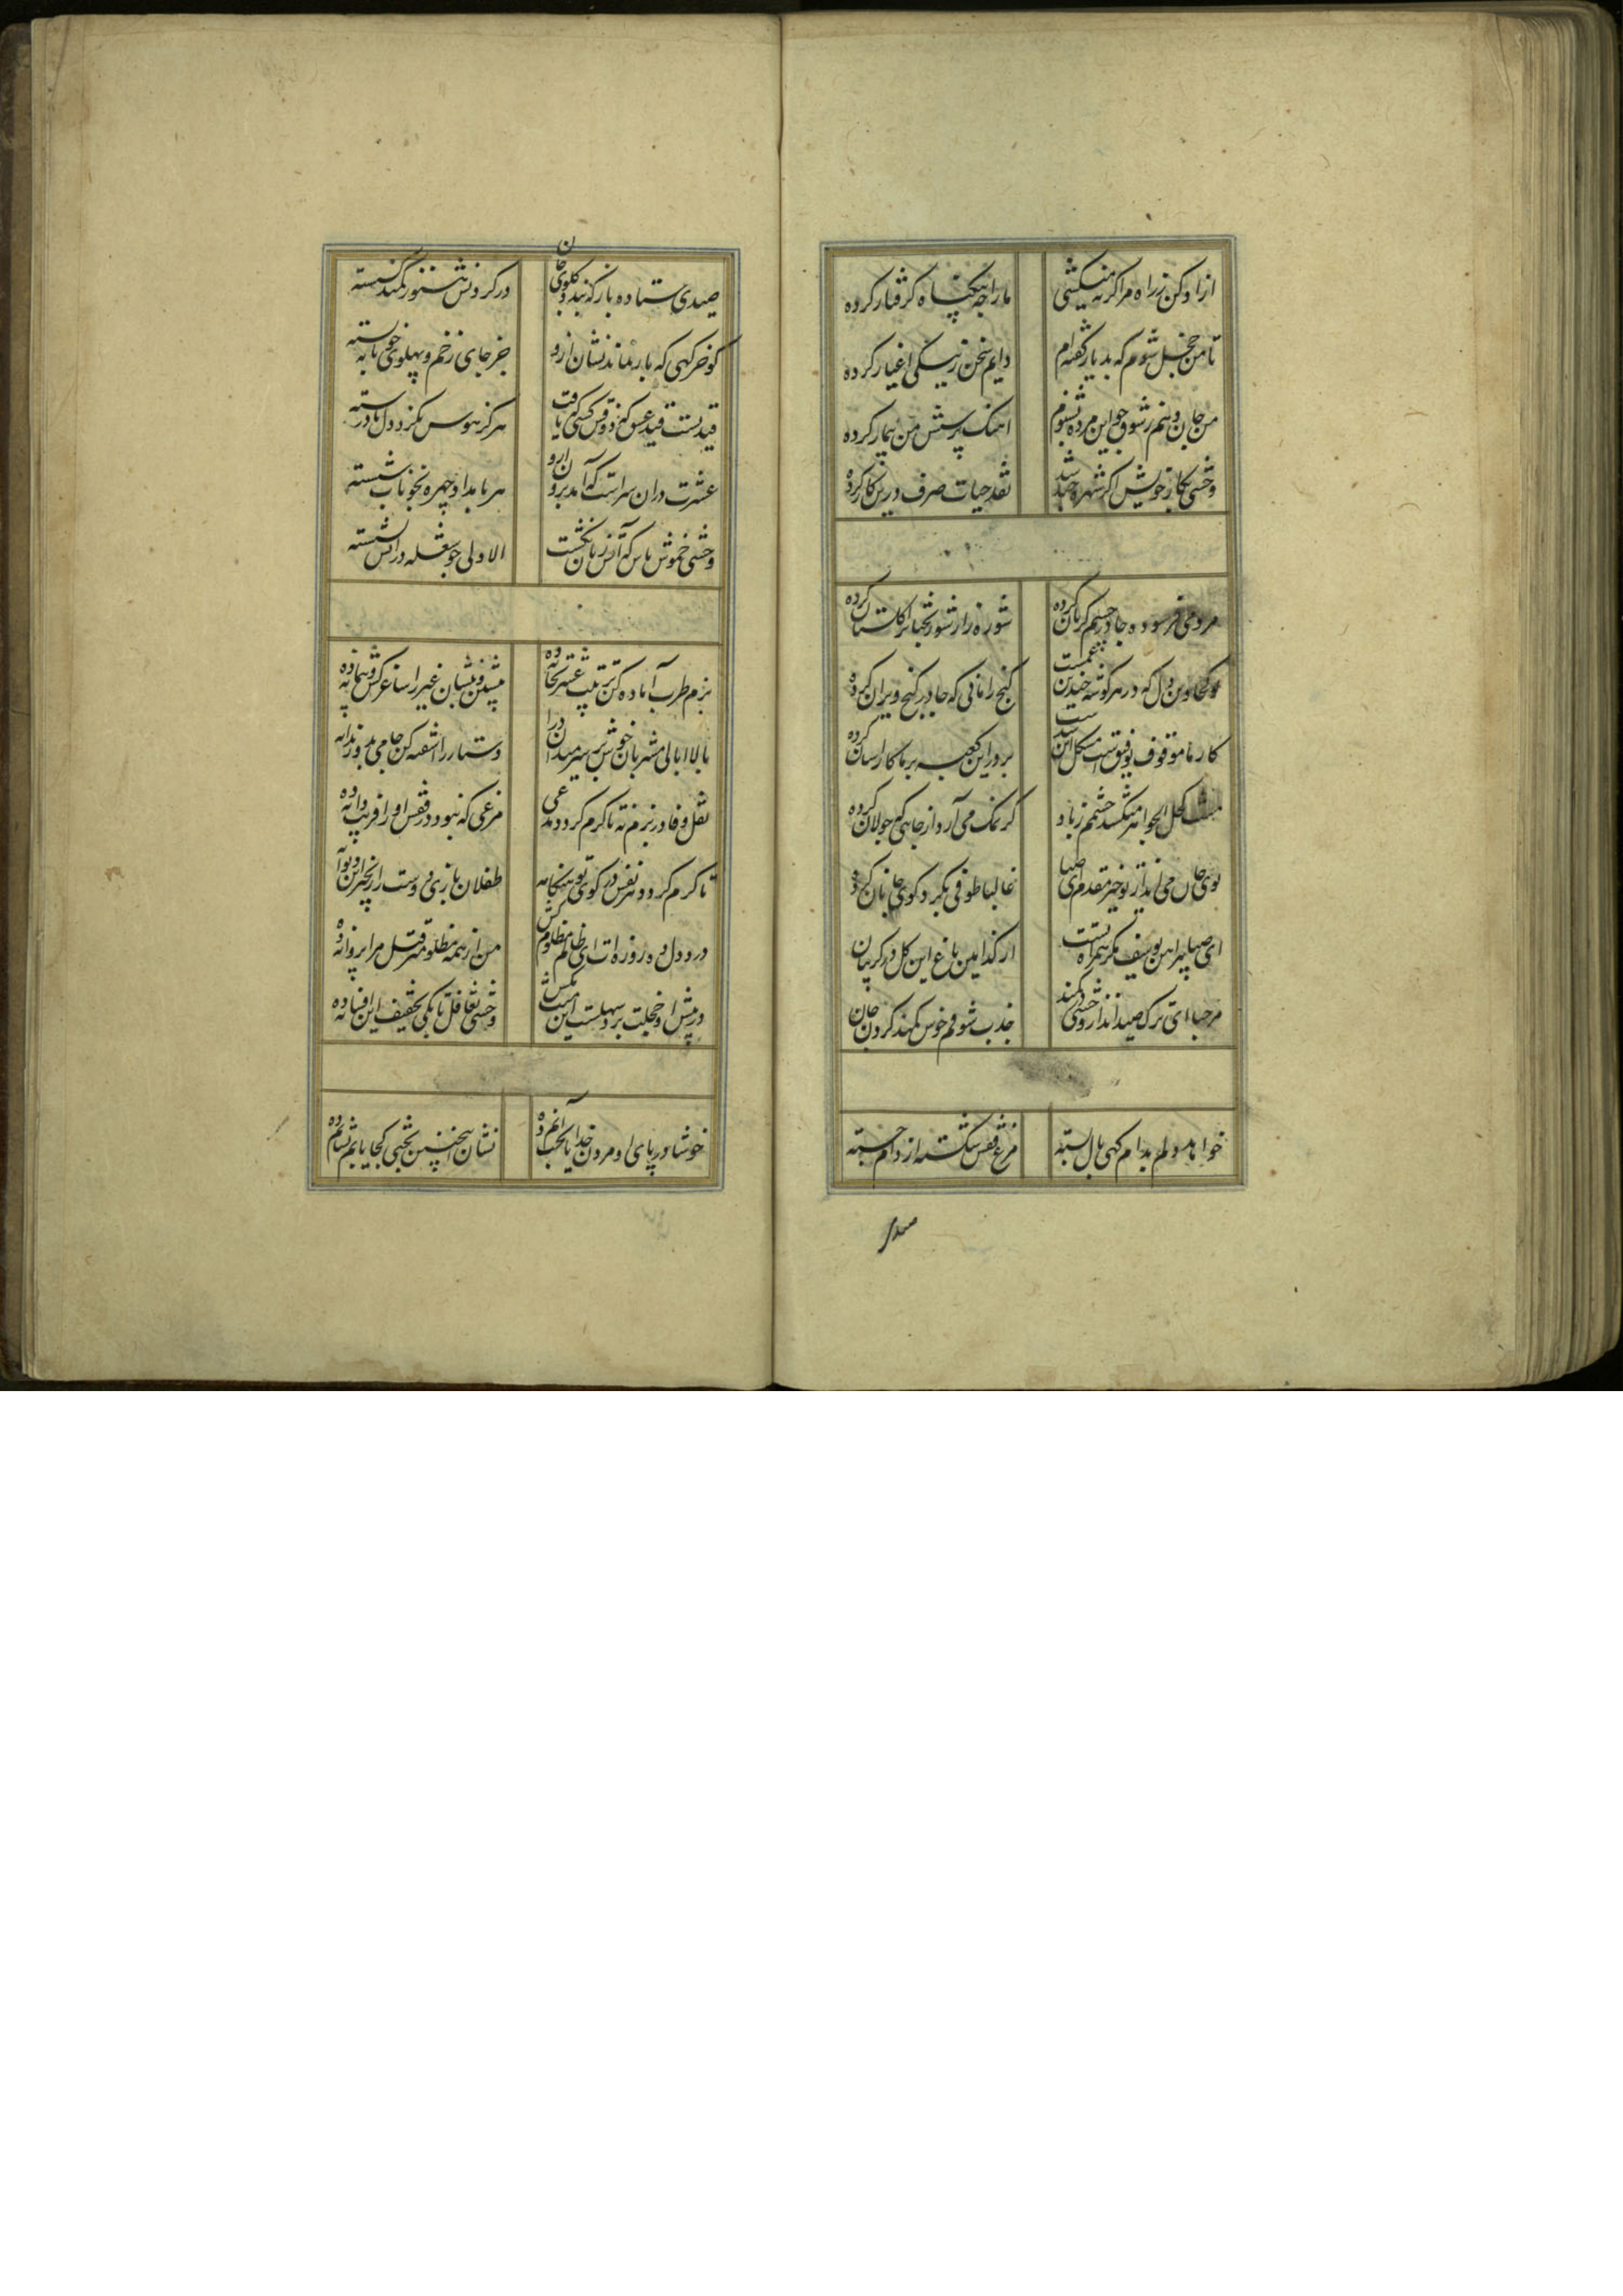 ازاد کن ز راه مرا کر نمیکشی
ما را چه بیکناه کرفتار کرده
تا من خجل شوم که بد یار کفته ام
دایم سخن ز نیکی اغیار کرده
من جان دهم ز شوق چو این مژده بشنوم
اهنک پرسش من بیمار کرده
وحشی بکار خویش اکر شهره شد
نقد حیات صرف درین کار کرده
مردمی فرموده جا در چشم کریان کرده
شوره زار شور بختانرا کلستان کرده
که در هر کوشه چندین غمیست
کنج را مانی که جا در کنج ویران کرده
کار ما موقوف توفیقست مشکل این شدست
بر در این کعبه بر ما کار اسان کرده
کحل الجواهر میکشد چشمم ز باد
کز نمک می آرد از جایی که جولان کرده
بوی جان می اید از تو خیر مقدم ای صبا
غالبا طوفی بکرد کوی جانان کرده
ای صبا پیراهن یوسف مکر همراه تست
از کدامین باغ این کل در کریبان
مرحبا ای ترک صید انداز وحشی در کمند
جذب شوقم خوش کمند کردن جان
خواهد دلم بدام کهی بال بسته
مرغ قفس شکسته از دام جسته
صیدی ستاده باز که بندد کلوی جان
در کردنش هنوز کمند کسسته
کو خرکهی که باز نماند نشان ازو
جز جای زخم و پهلوی خونابه بسته
قیدیست قید عشق که ذوق کسی که یافت
هرکز هوس نکرد دل باز رسته
عشرت دران سراست که آید برون ازو
هر بامداد چهره بخوناب شسته
وحشی خموش باش که آتش زبان کشت
الا دلی چو شعله در آتش نشسته
بزم طرب آماده کن ترتیب عشرتخانه ده
پیش من و پیشان غیر را ساغر کش و پیمانه ده
با لاابالی مشربان خوش بر سر میدان درا
دستار را اشفته کن جامی بده رندانه
نقل وفا در بزم نه تا کرم کردد مدعی
مرغی که نبود در قفس او را فریب دانه ده
تا کرم کردد هر نفس در کوی تو هنکامه
طفلان بازی دوست را زنجیر این دیوانه
درد دل ده روزه ات ای ظالم مظلوم کش
من از همه مظلومتر قتل مرا پروانه ده
در پیش او خجلت برد سهلست این منت مکش
وحشی تغافل تا بکی تخفیف این افسانه ده
خوشا در پای او مردن خدایا بخت آنم ده
نشان اینچنین بختی کجا یابم نشانم ده